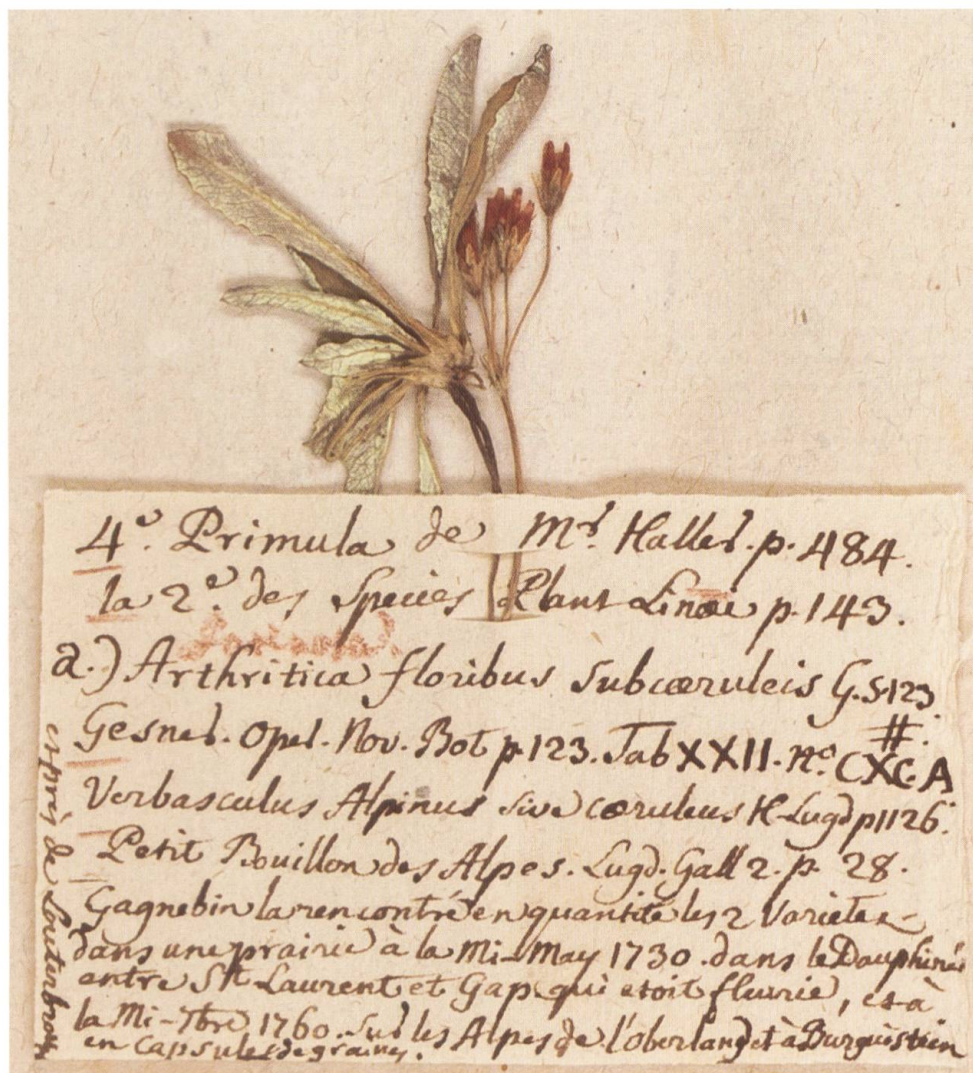 4e. Primula de Mr. Haller. p. 484.
la 2e. des Species Plant Linæi p. 143.
a.) Arthritica floribus Subcæruleis G. S. 123
#.
Gesner. Oper. Nov. Bot p. 123. Tab XXII. No. CXC. A
Verbasculus Alpinus sive cæruleus H-Lugd p 1126.
Petit Bouillon des Alpes. Lugd. Gall 2. p. 28.
Gagnebin la rencontré en quantité les 2 Varietes
dans une prairie à la Mi-May 1730. dans le Dauphiné
entre St. Laurent et Gap qui etoit fleurie, et à
la Mi-7bre 1760. Sur les Alpes de l'oberland et à Burguistein
en Capsules de graines.
et près de Louterbroun